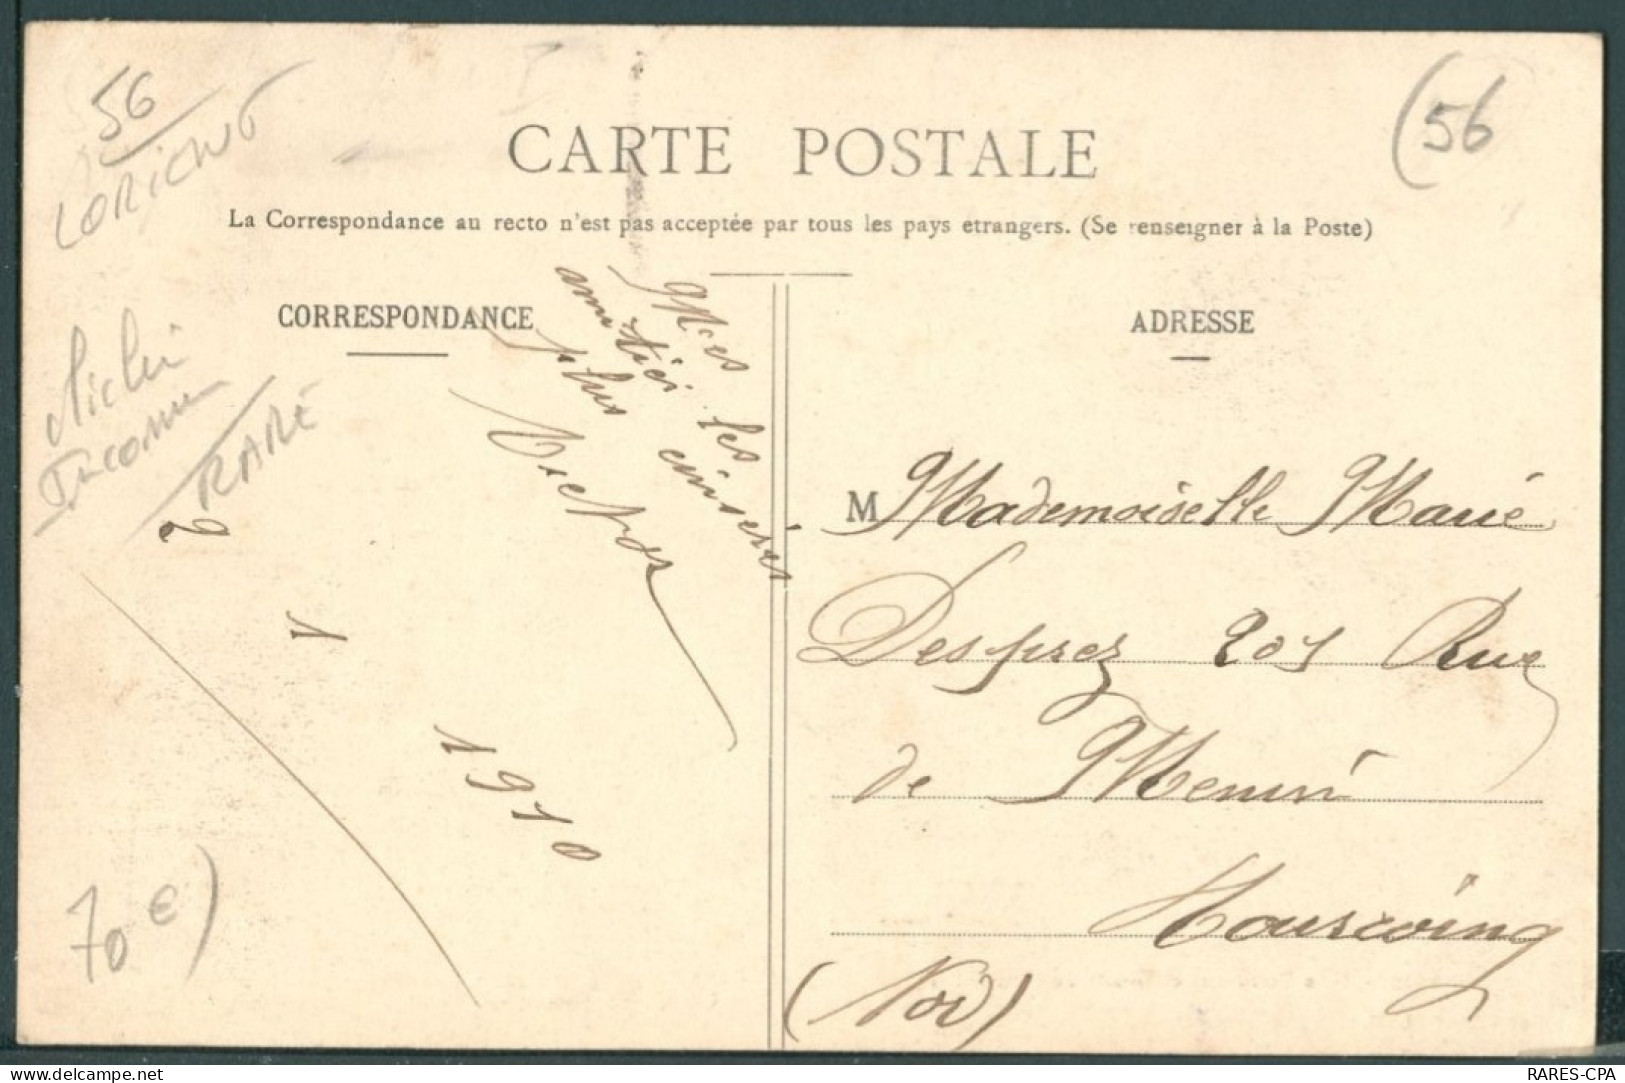 56
LORIENT
(56
CARTE POSTALE
La Correspondance au recto n'est pas acceptée par tous les pays etrangers. (Se renseigner à la Poste)
CORRESPONDANCE
ADRESSE
RARE
Mes
amitiés les
plus sincères
Victor
2
1
1910
70 €)
M Mademoiselle Marie
Desprez 201 Rue
de Menin
Tourcoing
(Nord)
RARES-CPA